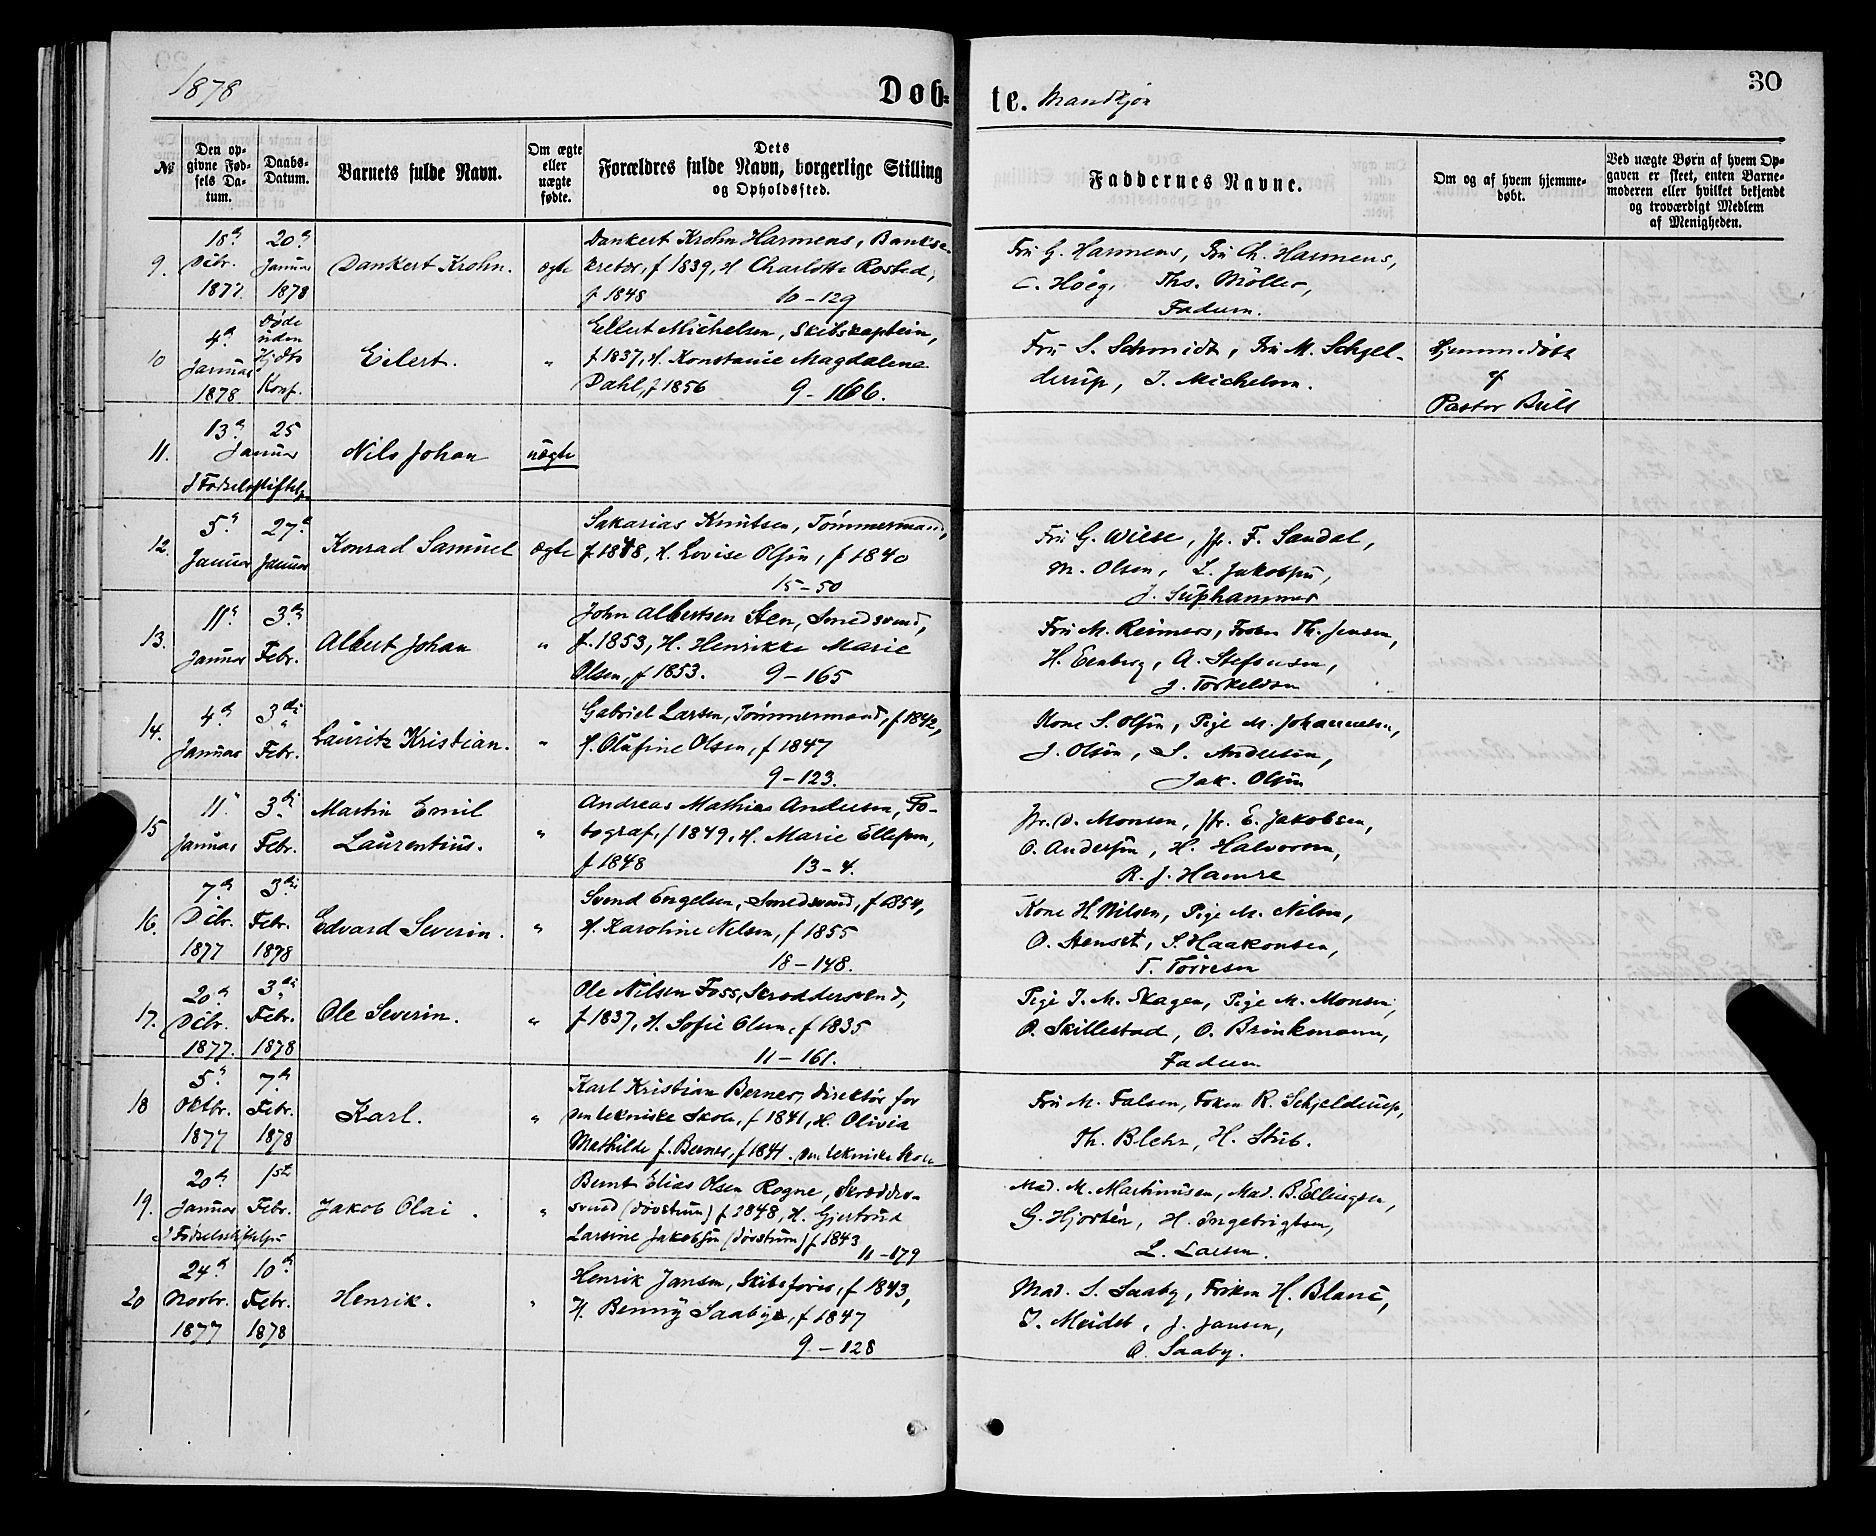 1878
Døb-
te. Mandkjøn
30
№
Den op-
givne Fød-
sels Da-
tum.
Daabs-
Datum.
Barnets fulde Navn.
Om ægte
eller
uægte
fødte.
Dets
Forældres fulde Navn, borgerlige Stilling
og Opholdssted.
Faddernes Navne.
Om og af hvem hjemme-
døbt.
Ved uægte Børn af hvem Op-
gaven er skeet, enten Barne-
moderen eller hvilket bekjendt
og troværdigt Medlem
af Menigheden.
9.
18d
Dcbr.
1877.
20d
Januar
1878
Dankert Krohn.
ægte
Dankert Krohn Harmens, Bankse-
kretær, f 1839, H Charlotte Rosted,
f 1848 10-129
Fru G. Harmens, Fru Ch. Harmens,
C. Høeg, Ths. Möller,
Faderen.
10
4d
Januar
1878
Døde
uden
Kirk
Konf.
Eilert.
"
Ellert Michelsen, Skibskaptein,
f 1837, H. Konstance Magdalene
Dahl, f 1856 9-166.
Fru S. Schmidt, Fru M. Schjel-
derup, J. Michelsen.
Hjemmedøbt
af
Pastor Bull
11.
13d 25
Januar
I Fødselsstiftelsen
Nils Johan
uægte
12.
5d
Januar
27d
Januar
Konrad Samuel
ægte
Sakarias Knutsen, Tømmermand,
f. 1848, H. Lovise Olsen, f 1840
15-50
Fru G. Wiese, Jfr. F. Sandal,
M. Olsen, L. Jakobsen,
J. Suphammer
13.
11d
Januar
3di
Febr.
Albert Johan
"
John Albertsen Sten, Smedsvend,
f. 1853, H. Henrikke Marie
Olsen, f 1853. 9-165
Fru M. Reimers, Frøken Th. Jensen,
H. Eenberg, A. Stefensen,
J. Torkeldsen
14.
4d
Januar
3di
Febr.
Lauritz Kristian.
"
Gabriel Larsen, Tømmermand, f 1842,
H. Olufine Olsen, f 1847
9-123.
Kone S. Olsen, Pige M. Johannesen,
J. Olsen, S. Andersen,
Jak. Olsen
15
11d
Januar
3di
Febr.
Martin Emil
Laurentius.
"
Andreas Mathias Andersen, Fo-
tograf, f 1849, H. Marie Ellefsen,
f 1848 13-4.
Jfr. D. Monsen, Jfr. E. Jakobsen,
O. Andersen, H. Halvorsen,
R. J. Hamre
16.
7d
Dcbr.
1877
3di
Febr.
1878
Edvard Severin.
"
Svend Engelsen, Smedsvend, f 1854,
H. Karoline Nilsen, f 1855
18-148.
Kone H. Nilsen, Pige M. Nilsen,
O. Stenset, S. Haakonsen,
T. Torresen
17.
20d
Dcbr.
1877.
3di
Febr.
1878
Ole Severin.
"
Ole Nilsen Foss, Skreddersvend,
f 1837, H. Sofie Olsen, f 1835
11-161.
Pige J. M. Skagen, Pige M. Monsen,
O. Skillestad, O. Brinkmann,
Faderen
18
5d
Oktbr.
1877
7d
Febr.
1878
Karl.
"
Karl Kristian Berner, Direktør for
den tekniske Skole, f 1841, H. Olivia
Mathilde f. Berner, f 1841. Den tekniske Skole
Fru M. Falsen, Frøken R. Schjelderup,
Th. Blehr, H. Stub.
19.
20d
Januar
1ste
Febr.
I Fødselsstiftelsen
Jakob Olai.
"
Bernt Elias Olsen Rogne, Skredder-
svend (døvstum) f 1848, H. Gjertrud
Larsine Jakobsen (døvstum) f 1843
11-179
Mad. M. Martinusen, Mad. B. Ellingsen,
G. Hjortén, H. Ingebrigtsen,
L. Larsen.
20
24d
Novbr.
1877
10d
Febr.
1878
Henrik.
"
Henrik Jansen, Skibsfører, f 1843,
H. Benny Saabye, f 1847
9-128
Mad. S. Saaby, Frøken H. Blanc,
J. Meidel, J. Jansen,
O. Saaby.